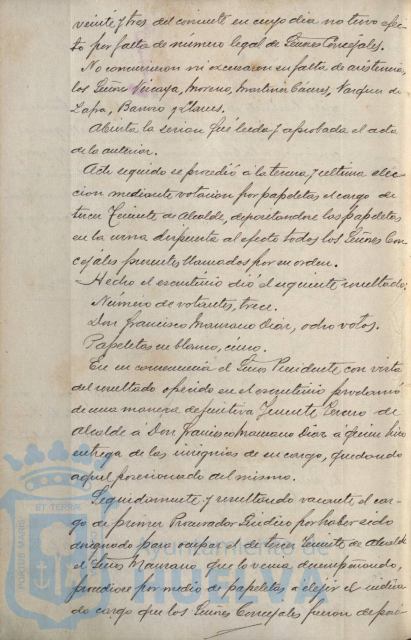 veinte y tres del corriente en cuyo dia no tuvo efec-
to por falta de número legal de Señores Concejales.
No concurrieron ni excusaron su falta de asistencia,
los Señores Vizcaya, Moreno, Martin Cáceres, Vazquez de
Zafra, Barrio y Claros.
Abierta la sesion fué leida y aprobada el acta
de la anterior.
Acto seguido se procedió á la tercera y ultima elec-
cion mediante votacion por papeletas el cargo de
tercer Teniente de Alcalde, depositandose las papeletas
en la urna dispuesta al efecto todos los Señores Con-
cejales presentes llamados por su orden.
Hecho el escrutinio dió el siguiente resultado:
Número de votantes, trece.
Don Francisco Maurano Diaz, ocho votos.
Papeletas en blanco, cinco.
En su consecuencia el Señor Presidente, con vista
del resultado ofrecido en el escrutinio proclamó
de una manera definitiva Teniente Tercero de
Alcalde á Don Francisco Maurano Diaz á quien hizo
entrega de las insignias de su cargo, quedando
aquel posesionado del mismo.
Seguidamente y resultando vacante el car-
go de primer Procurador Síndico por haber sido
designado para ocupar el de tercer Teniente de Alcalde
el Señor Maurano, que lo venia desempeñando,
procediose por medio de papeletas, a elejir el indica-
do cargo que los Señores Concejales fueron depo-
PORTUS MARIS ET TERRAE
Ayuntamiento de
HUELVA